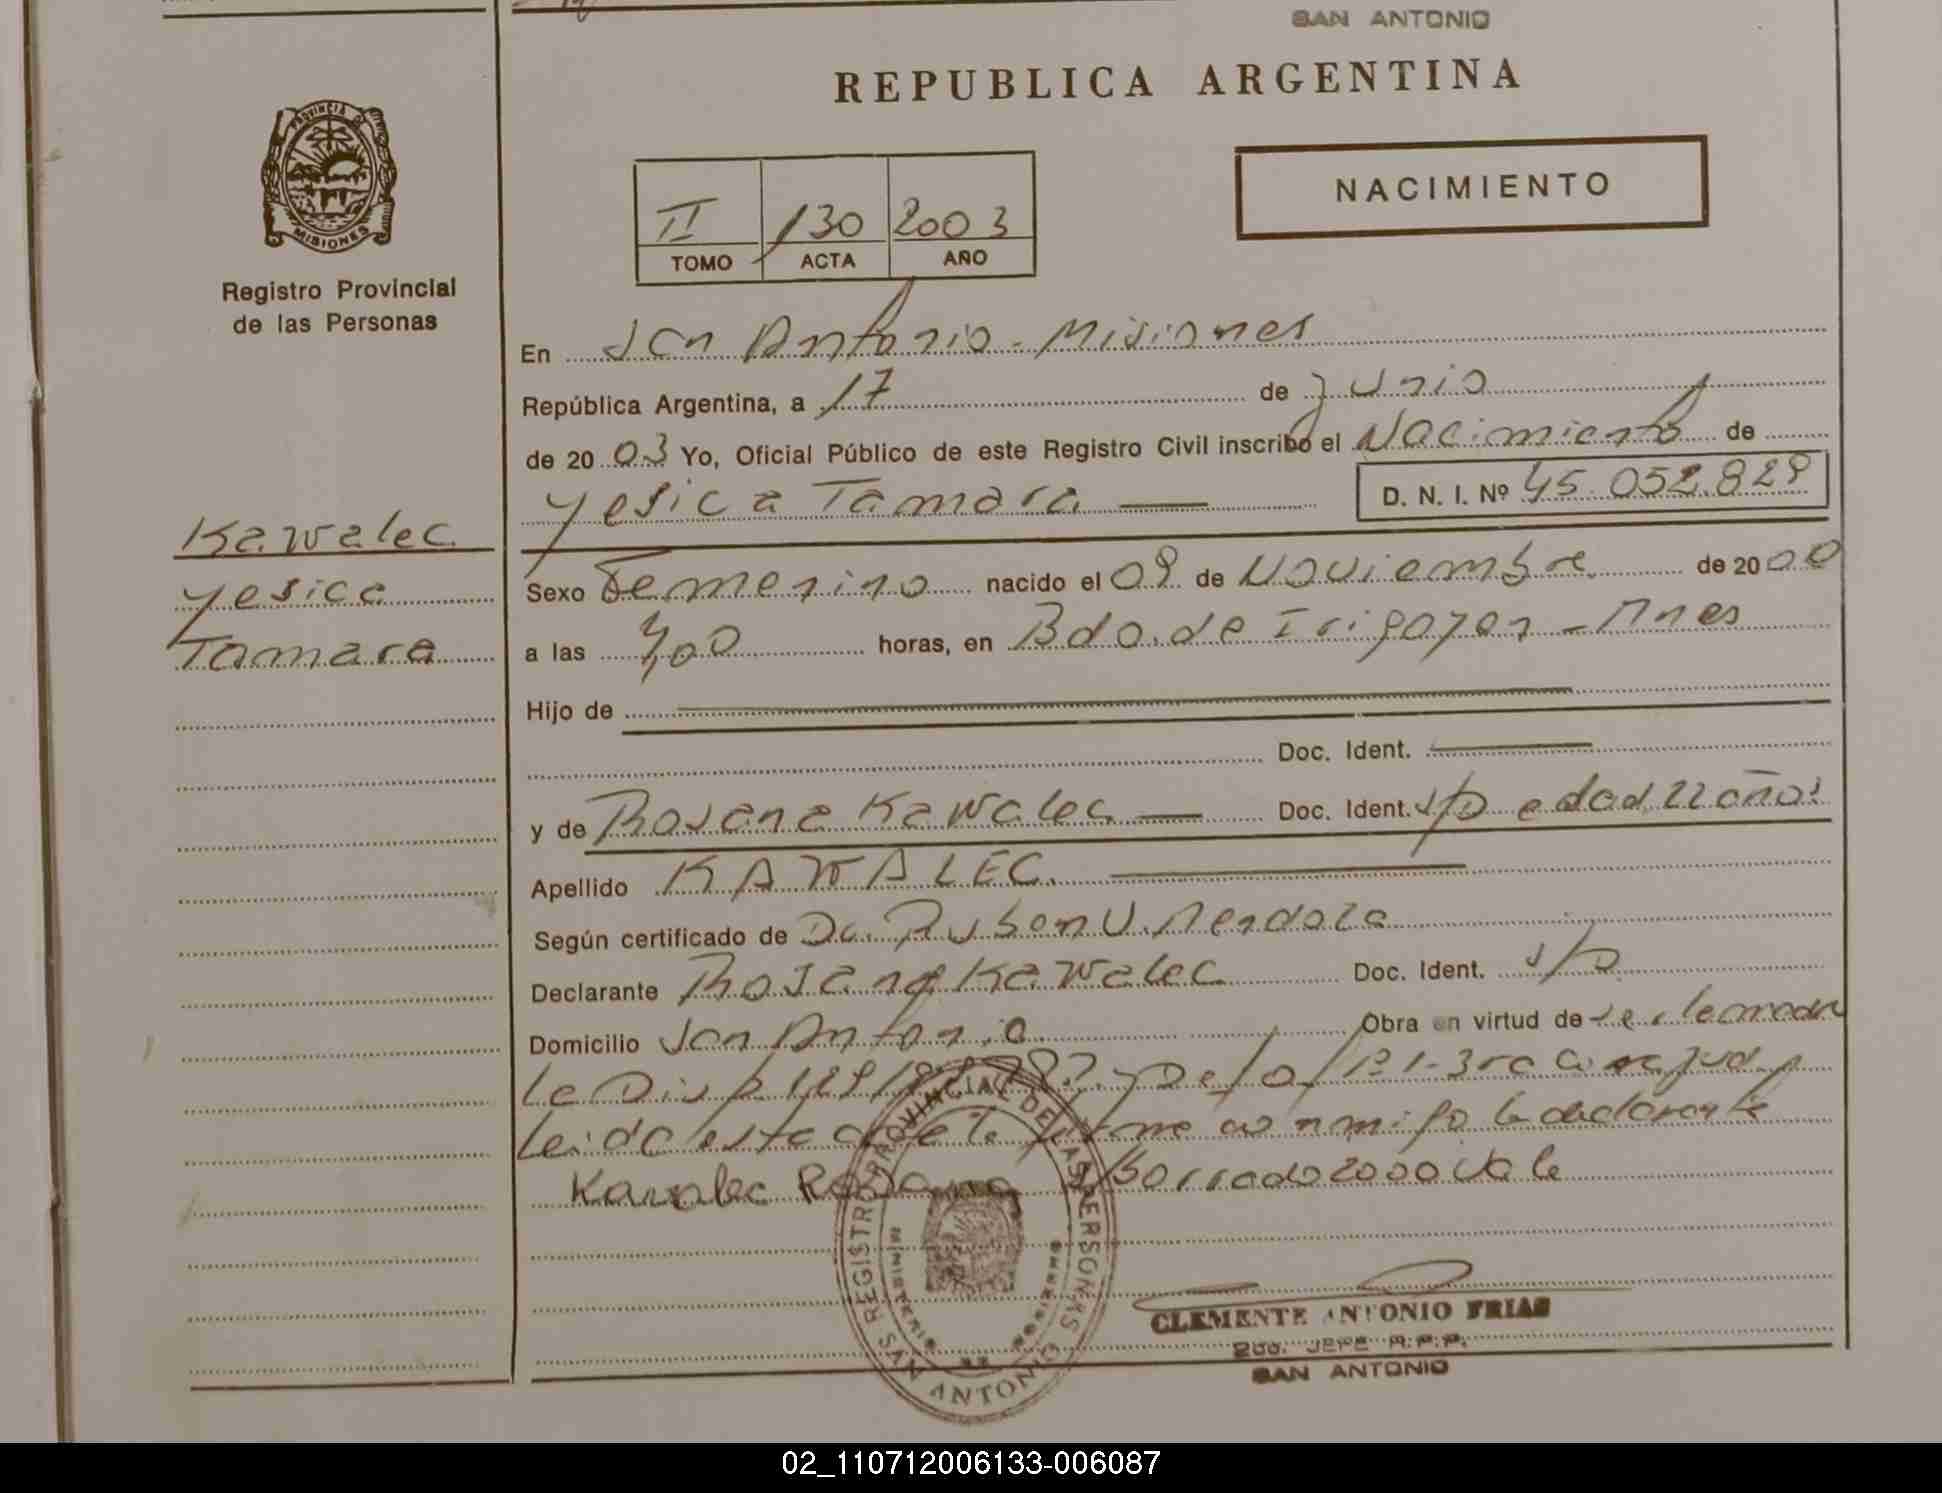 SAN ANTONIO
REPUBLICA ARGENTINA
NACIMIENTO
PROVINCIA DE
MISIONES
Registro Provincial
de las Personas
II 130 2003
TOMO ACTA AÑO
En San Antonio - Misiones
República Argentina, a 17 de Junio
de 20 03 Yo, Oficial Público de este Registro Civil inscribo el Nacimiento de
Yesica Tamara
D. N. I. Nº 45.052.829
Kawalec
Yesica
Tamara
Sexo Femenino nacido el 09 de Noviembre de 20 00
a las horas, en Bdo. de Irigoyen - Mnes
Hijo de
Doc. Ident.
y de Rosana Kawalec Doc. Ident. s/D edad 22 años
Apellido KAWALEC
Según certificado de Dr. Ruben U. Mendoza
Declarante Rosana Kawalec Doc. Ident. s/D
Domicilio San Antonio Obra en virtud de
Le Leida esta acta firma conmigo la declarante
Kawalec Rosana Borrado 2000 Vale
REGISTRO PROVINCIAL DE LAS PERSONAS
MINISTERIO
MISIONES
SAN ANTONIO
CLEMENTE ANTONIO FRIAS
2do. JEFE R.P.P.
SAN ANTONIO
02_110712006133-006087